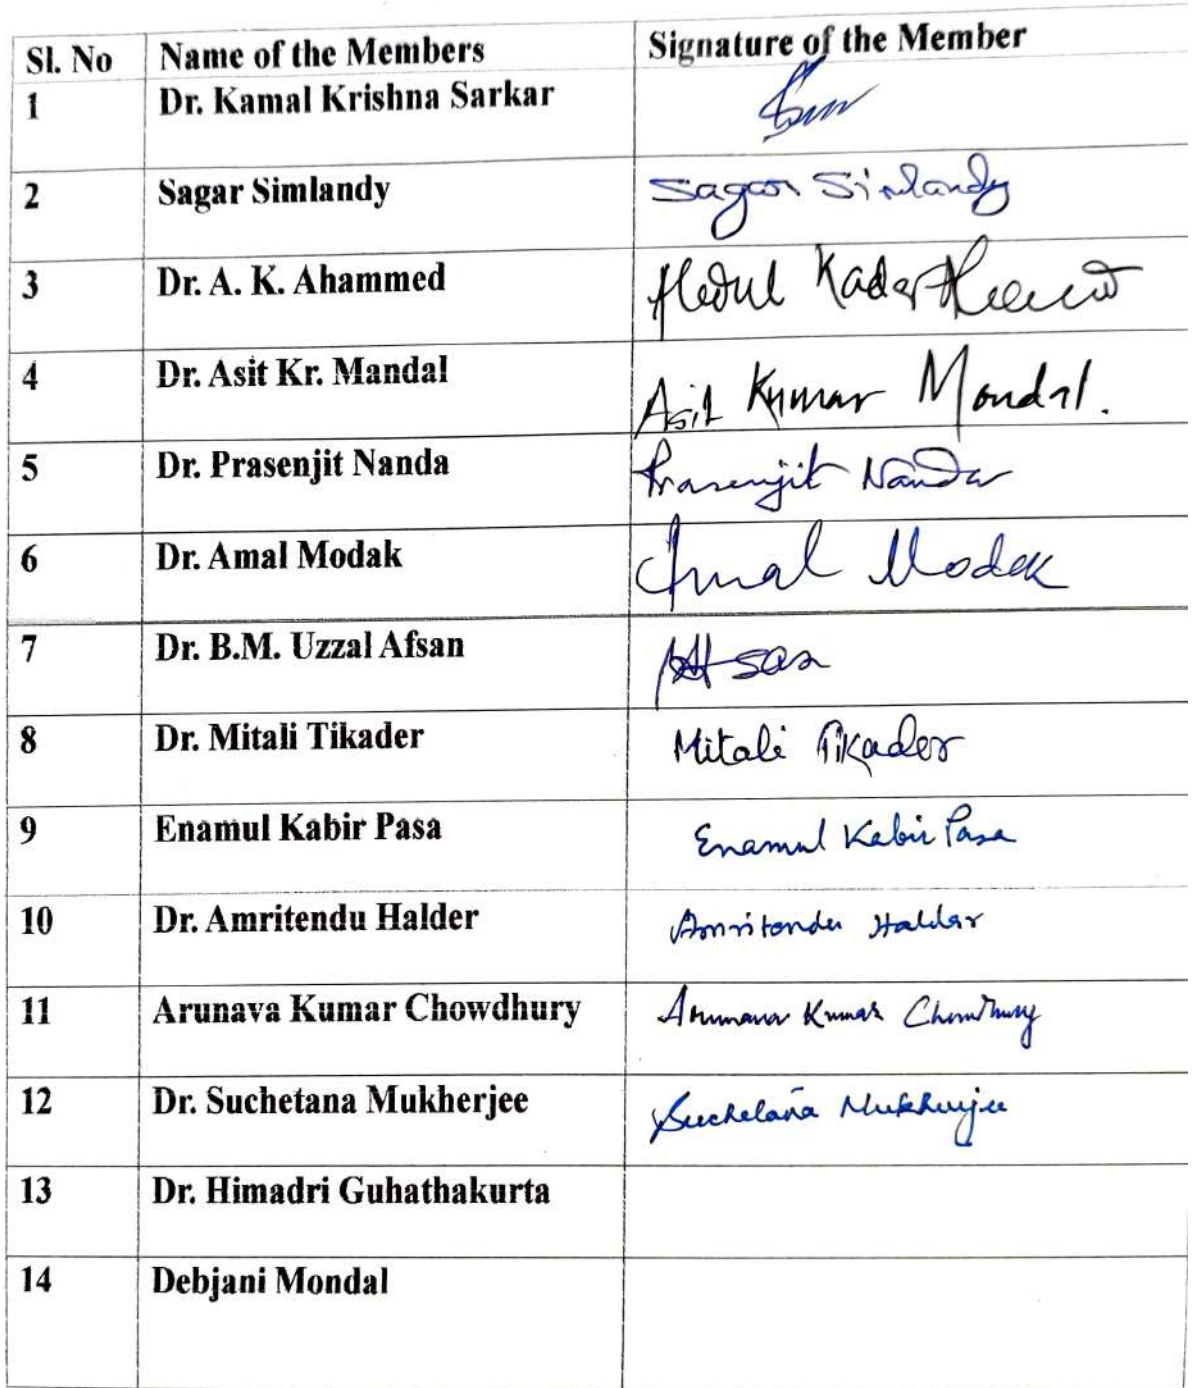 Sl. No Name of the Members Signature of the Member
1 Dr. Kamal Krishna Sarkar
2 Sagar Simlandy Sagar Simlandy
3 Dr. A. K. Ahammed Abdul Kader
4 Dr. Asit Kr. Mandal Asit Kumar Mondal.
5 Dr. Prasenjit Nanda Prasenjit Nanda
6 Dr. Amal Modak Amal Modak
7 Dr. B.M. Uzzal Afsan
8 Dr. Mitali Tikader Mitali Tikader
9 Enamul Kabir Pasa Enamul Kabir Pasa
10 Dr. Amritendu Halder Amritendu Halder
11 Arunava Kumar Chowdhury Arunava Kumar Chowdhury
12 Dr. Suchetana Mukherjee Suchetana Mukherjee
13 Dr. Himadri Guhathakurta
14 Debjani Mondal